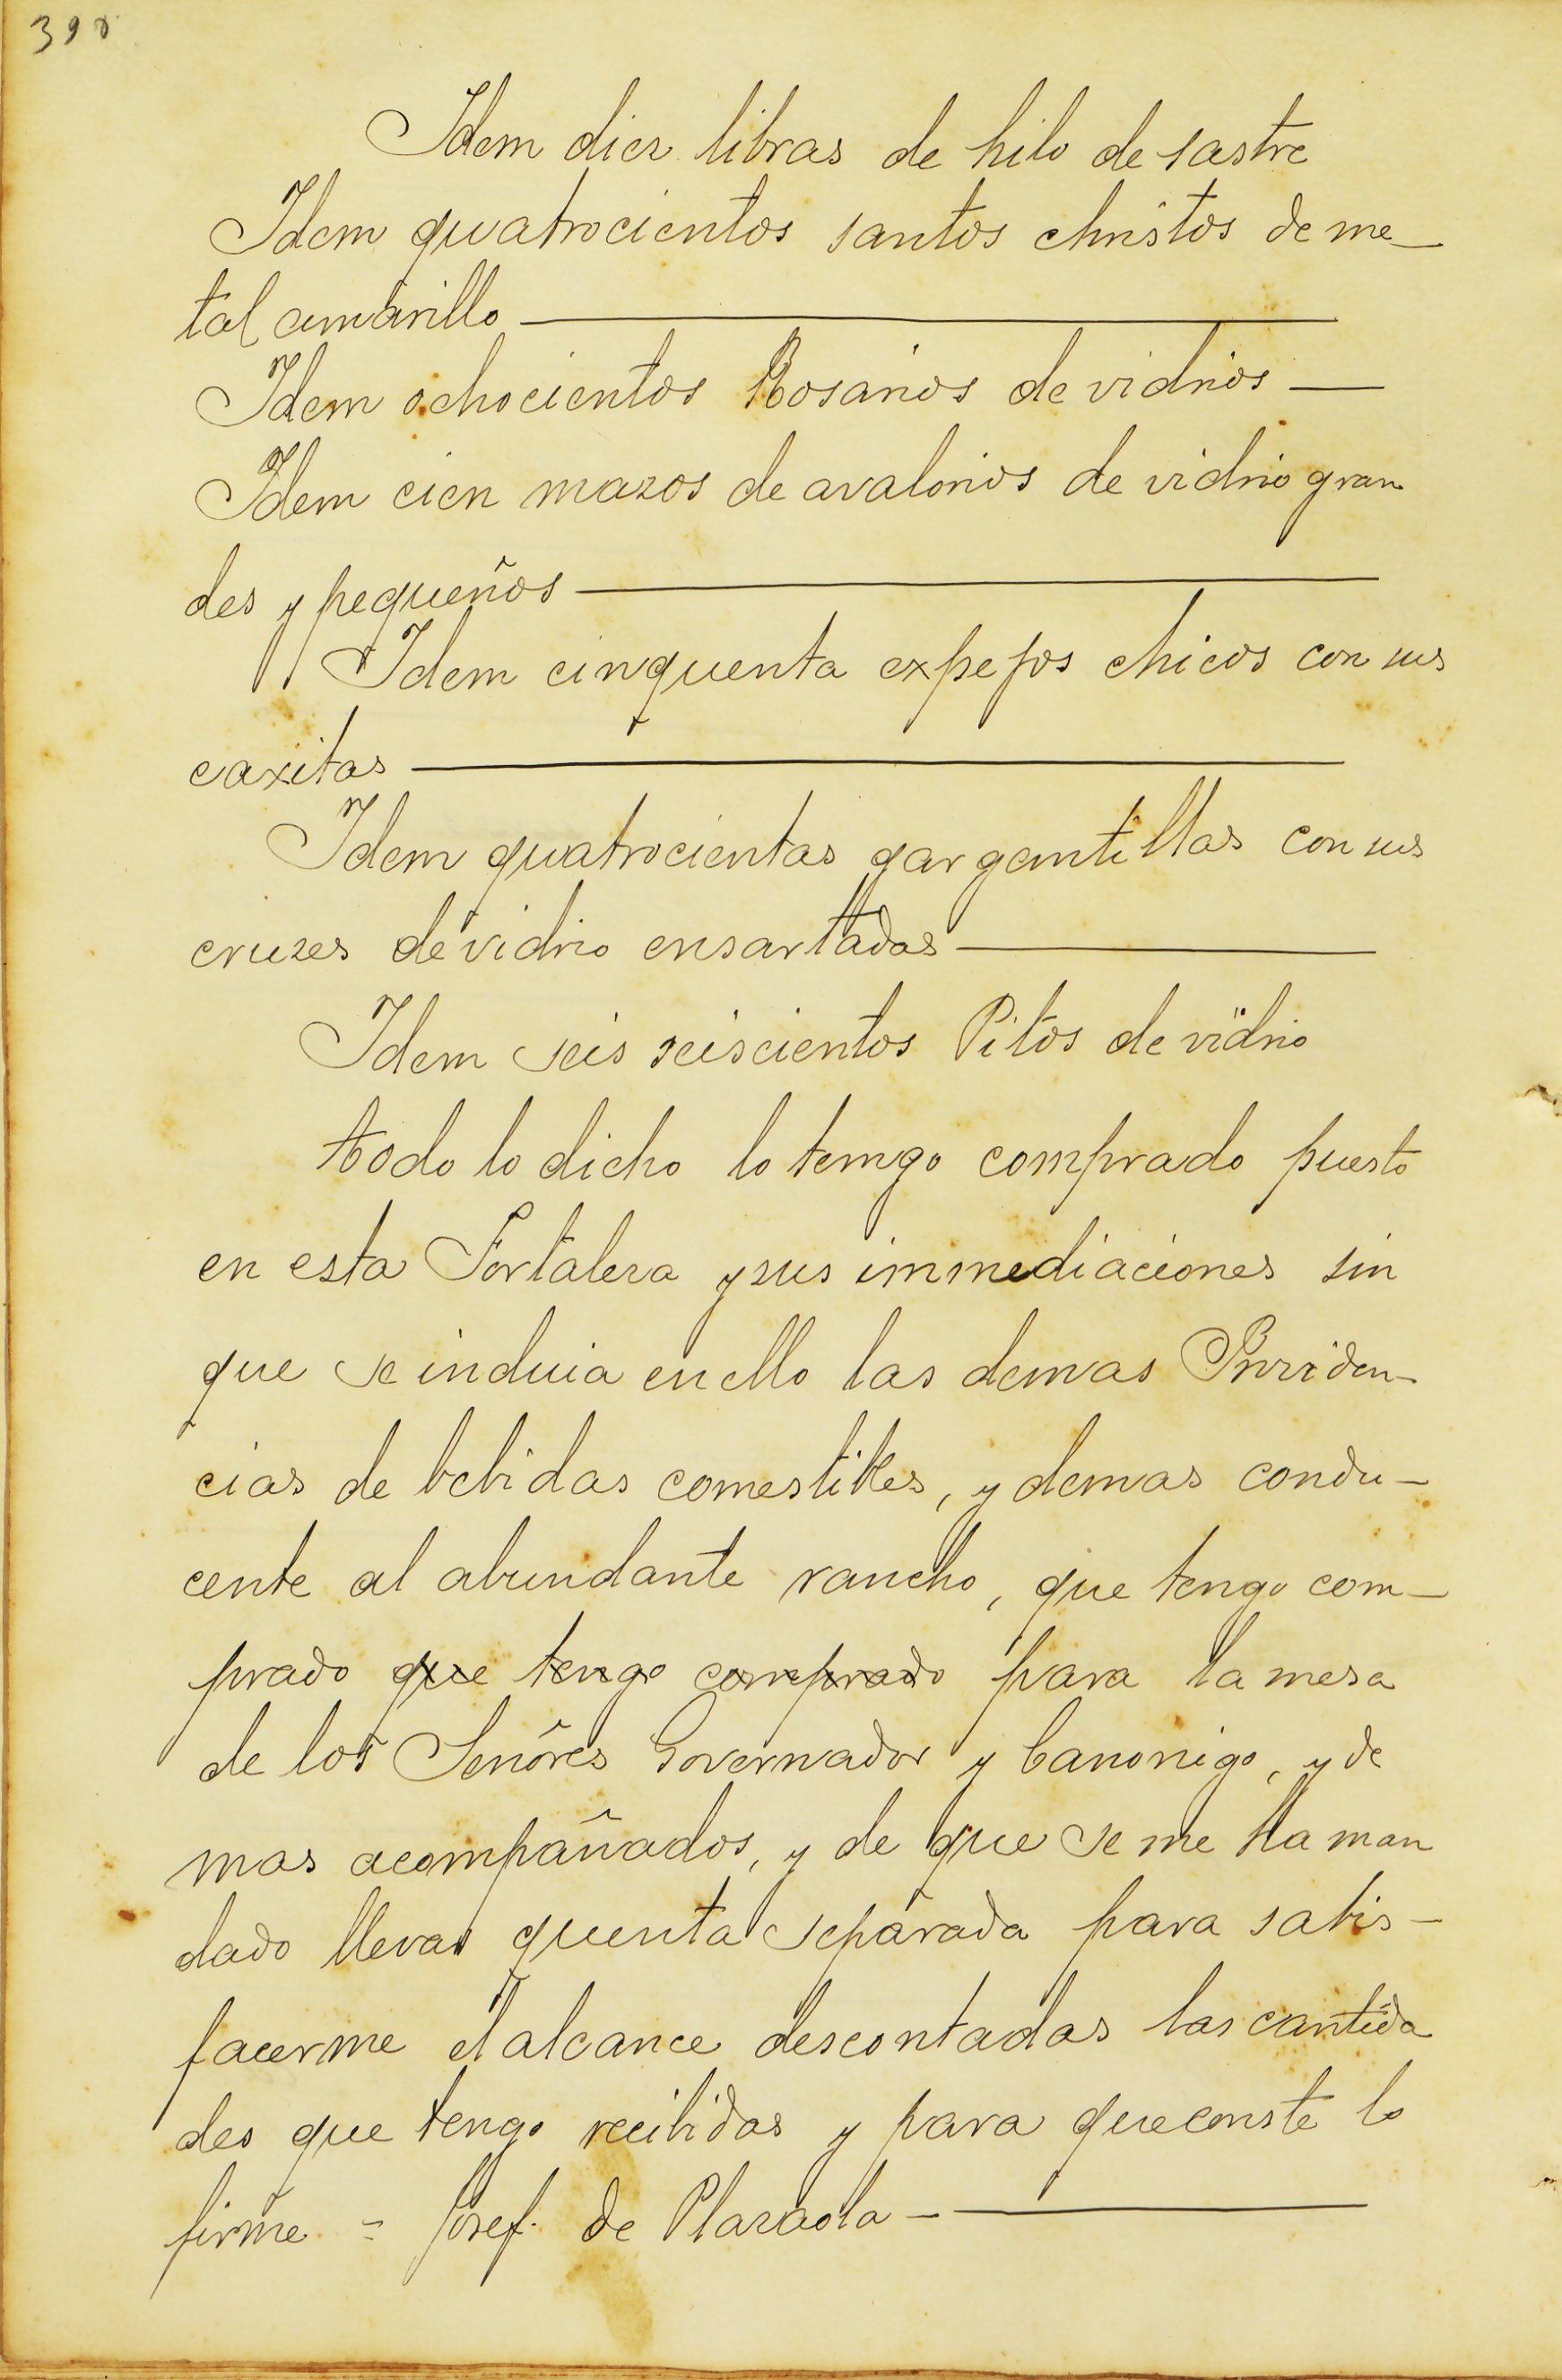 398
Idem diez libras de hilo de sastre
Idem quatrocientos santos christos de me-
tal amarillo
Idem ochocientos Rosarios de vidrios
Idem cien mazos de avalorios de vidrio gran
des y pequeños
Idem cinquenta expejos chicos con sus
caxitas
Idem quatrocientas gargantillas con sus
cruzes de vidrio ensartadas
Idem seis seiscientos Pitos de vidrio
todo lo dicho lo temgo comprado puesto
en esta Fortaleza y sus immediaciones sin
que se incluia en ello las demas Providen-
cias de bebidas comestibles, y demas condu-
cente al abundante rancho, que tengo com-
prado que tengo comprado para la mesa
de los Señores Governador y Canonigo, y de
mas acompañados, y de que se me ha man
dado llevar quenta separada para satis-
facerme el alcance descontadas las cantida
des que tengo recibidas y para que conste lo
firme = Josef. de Plazaola